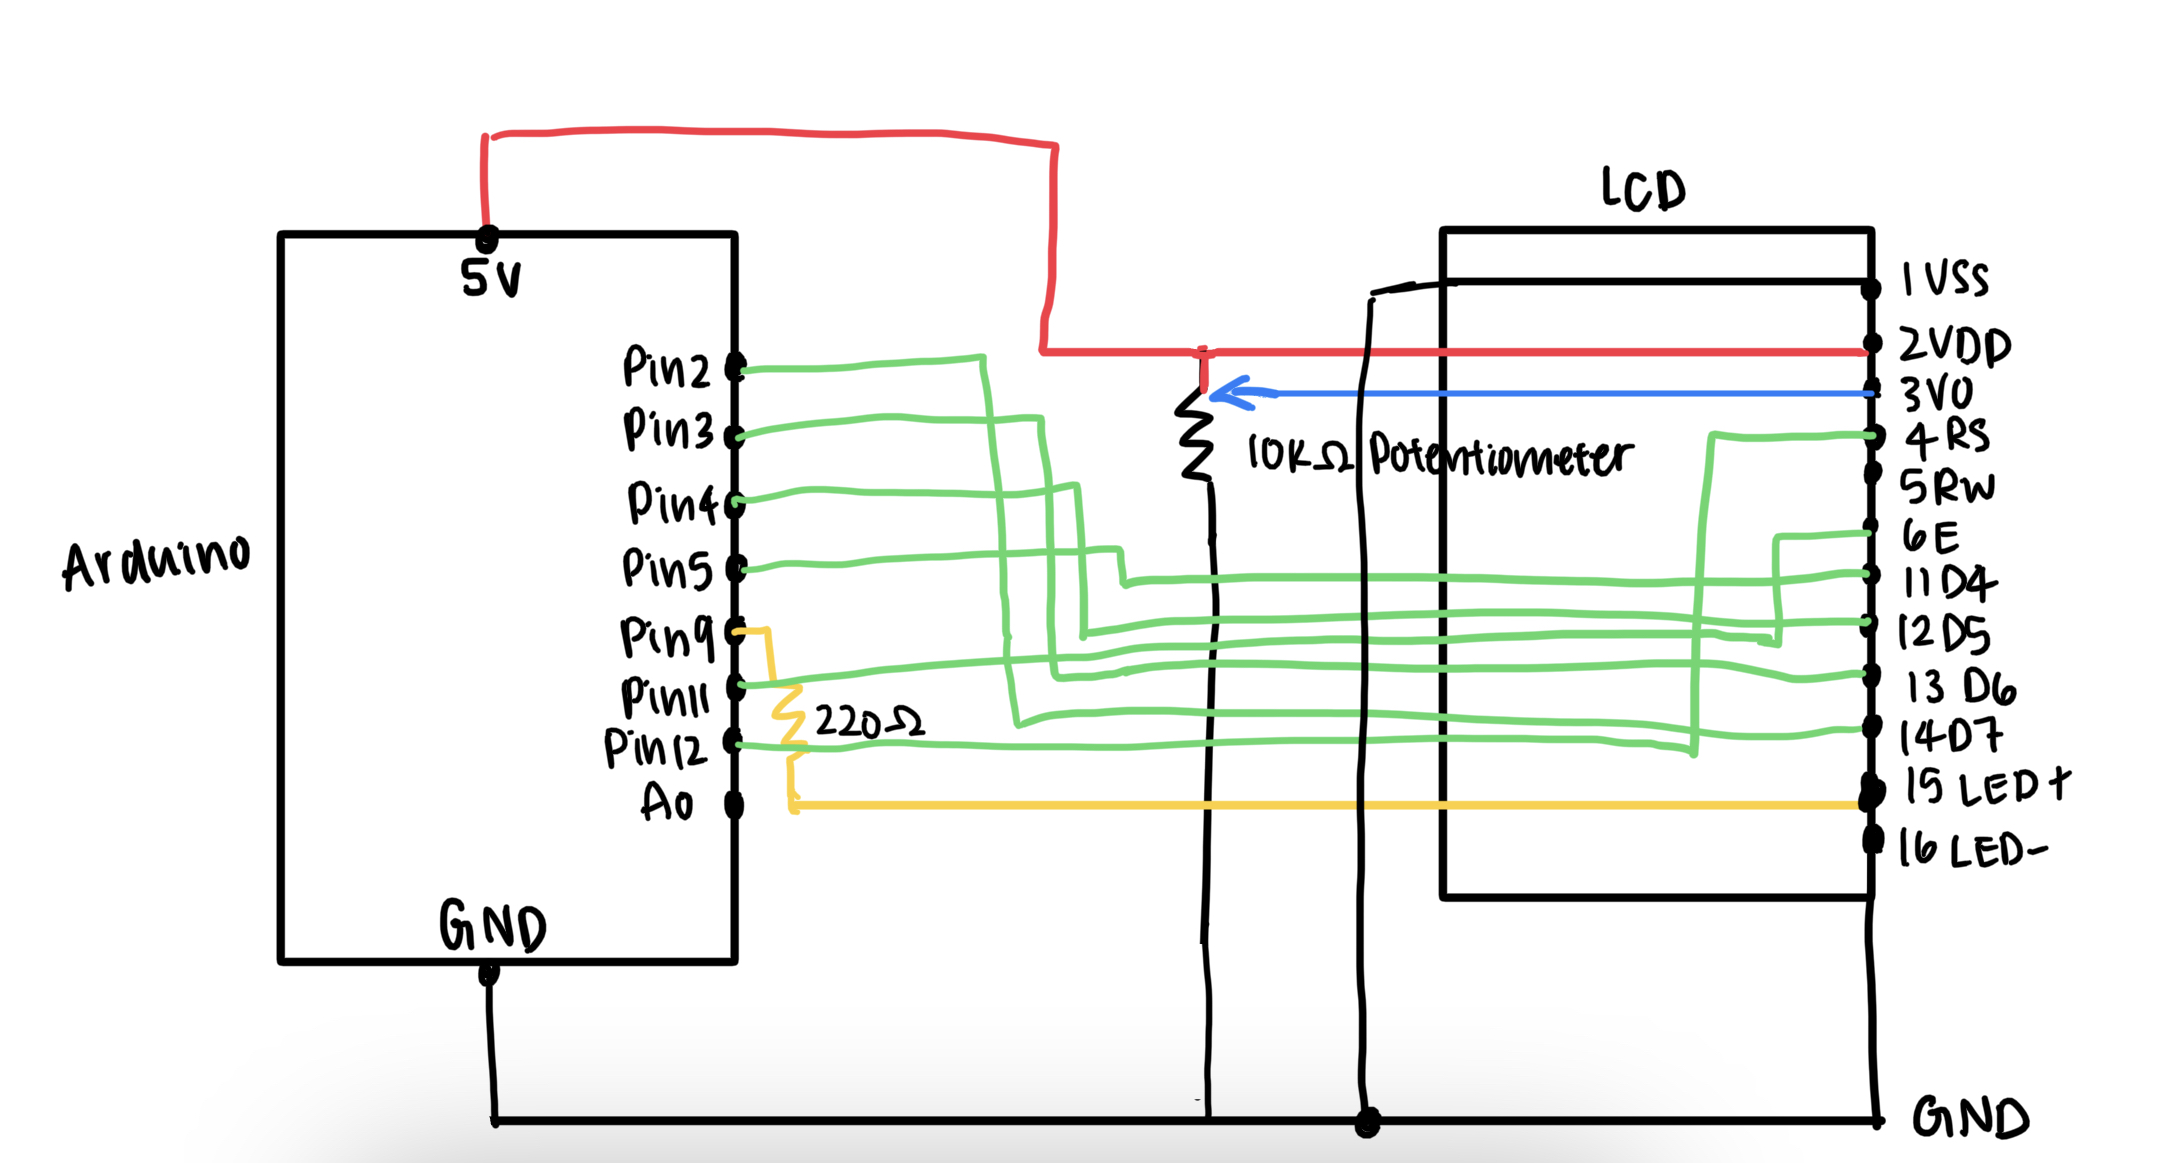 LCD
5V
Pin2
Pin3
Pin4
Pin5
Pin9
Pin11
Pin12
A0
GND
Arduino
220Ω
10KΩ Potentiometer
1 VSS
2 VDD
3 VO
4 RS
5 RW
6 E
11 D4
12 D5
13 D6
14 D7
15 LED+
16 LED-
GND